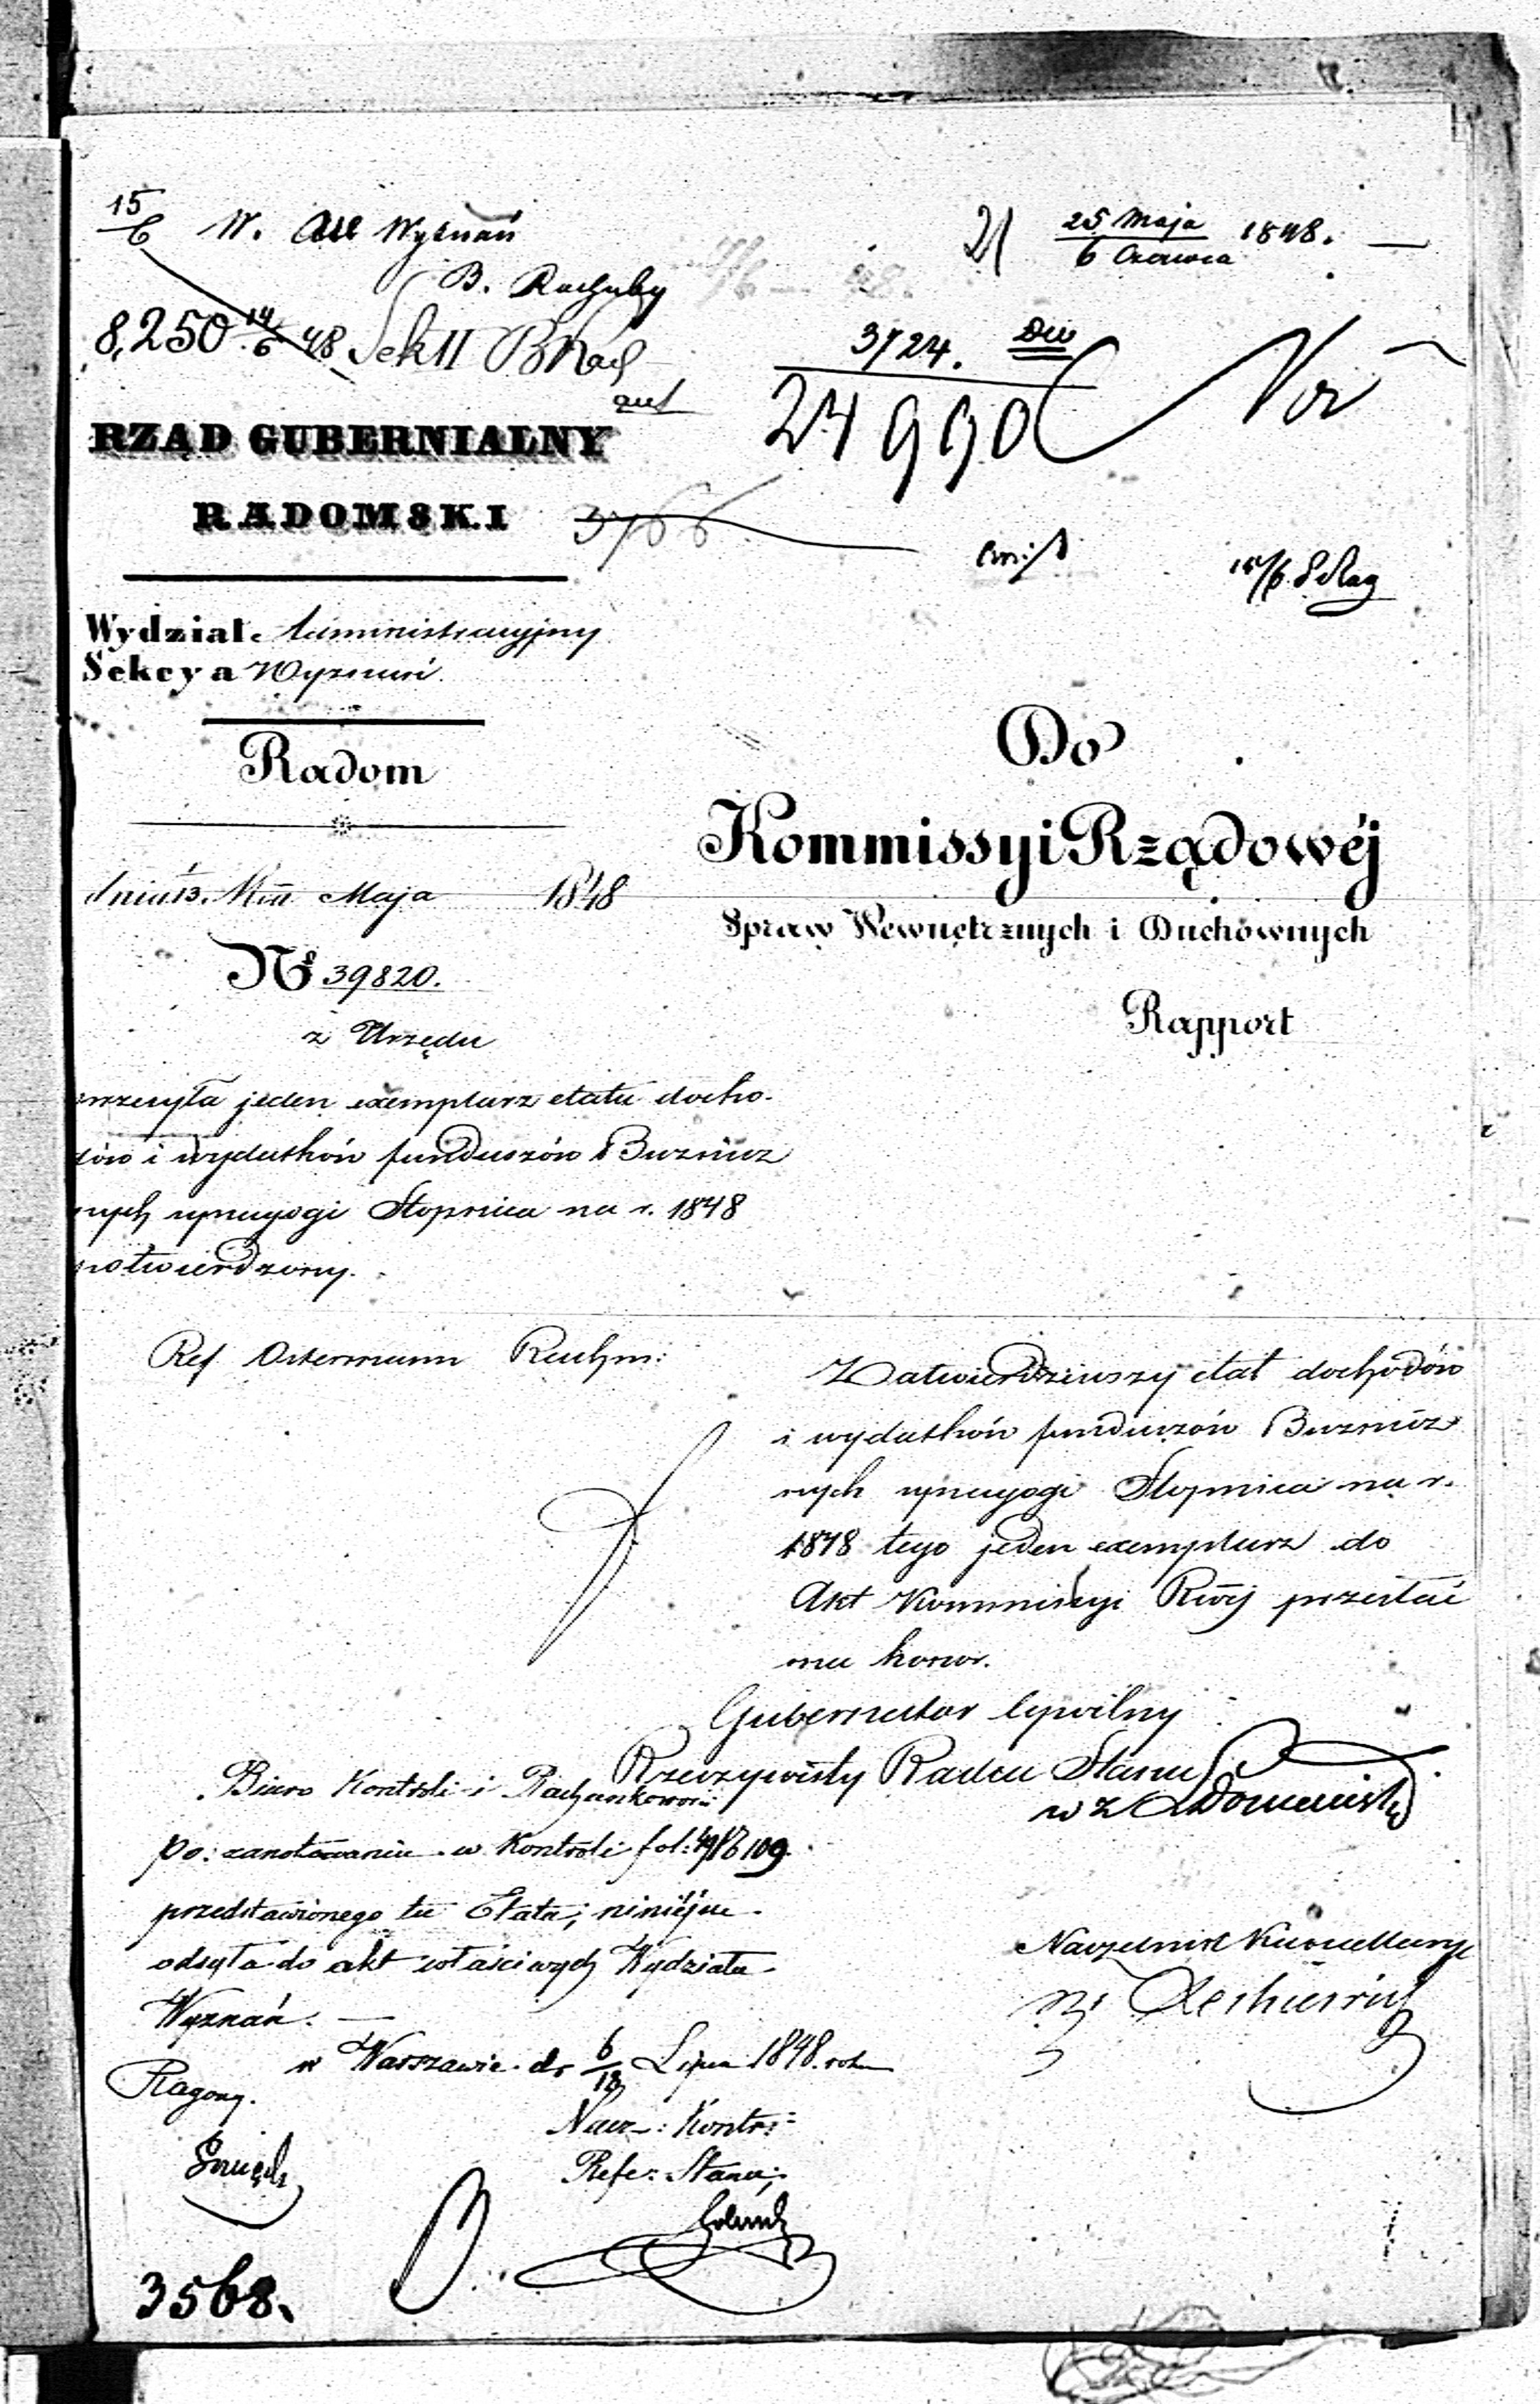 15/6 W. Wyznań
B. Rachuby
8,250 14/6 48 Sek II B Rach
21 25 Maja / 6 Czerwca 1848. —
3724.
24990
RZĄD GUBERNIALNY
RADOMSKI
3766
15/6
Wydział. Administracyjny
Sekcya Wyznań.
Radom
dnia 1/13. Maja 1848
№ 39820.
z Urzędu
przesyła jeden exemplarz etatu docho-
dów i wydatków funduszów Bużnicz
nych synagogi Stopnica na r. 1848
potwierdzony.
Do
Kommissyi Rządowéj
Spraw Wewnętrznych i Duchownych
Rapport
Ref Ostermann Rachm:
Zatwierdziwszy etat dochodów
i wydatków funduszów Bużnicz
nych synagogi Stopnica na r.
1848 tego jeden exemplarz do
Akt Kommissyi Rwéj przesłać
ma honor.
Gubernator Cywilny
Rzeczywisty Radca Stanu
w z
Naczelnik Kancellaryi
Biuro Kontroli i Rachunkowości
po: zanotowaniu w Kontroli fol: 109.
przedstawionego tu Etatu, niniéjsze
odsyła do akt właściwych Wydziału
Wyznań. —
w Warszawie d. 6/18 Lipca 1848. roku
Nacz: Kontr:
Refer: Stanu;
3568.